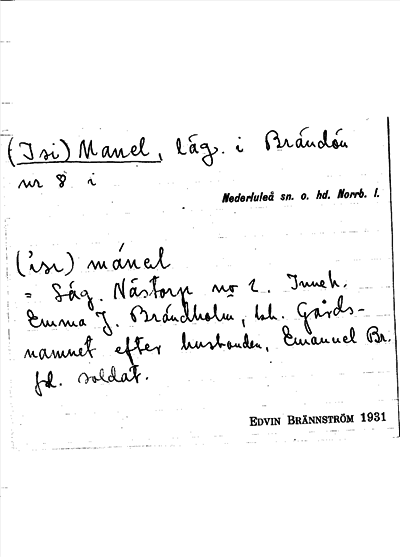 (Isi) Manel, låg. i Brändön
nr 8 i
Nederluleå sn. o. hd. Norrb. l.
('isi) mánel
= Låg. Nästorp nr 2. Inneh.
Emma J. Brändholm, lsk. Gårds-
namnet efter husbonden, Emanuel Br.
fd. soldat.
EDVIN BRÄNNSTRÖM 1931